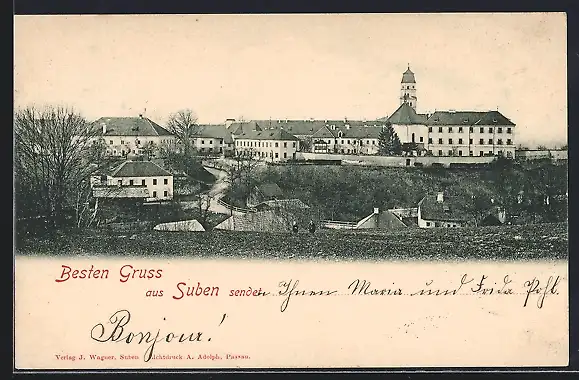 Besten Gruss
aus Suben sendet Ihnen Maria und Frida Pohl
Bonjour!
Verlag J. Wagner, Suben Lichtdruck A. Adolph, Passau.